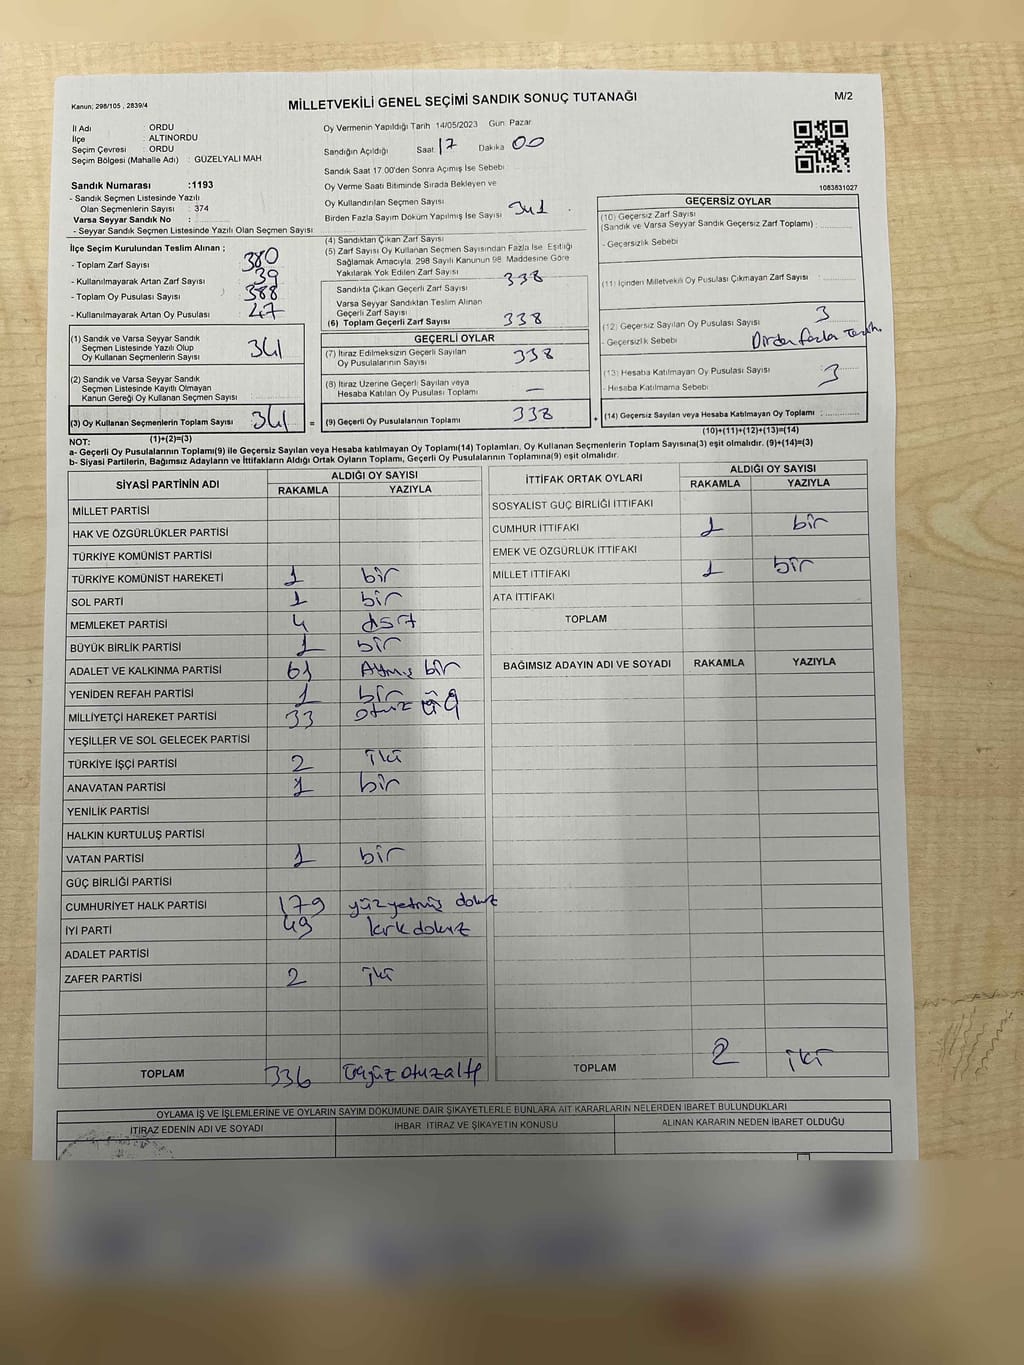 Kanun; 298/105 , 2839/4
MİLLETVEKİLİ GENEL SEÇİMİ SANDIK SONUÇ TUTANAĞI
M/2
İl Adı : ORDU
İlçe : ALTINORDU
Seçim Çevresi : ORDU
Seçim Bölgesi (Mahalle Adı) : GÜZELYALI MAH
Sandık Numarası :1193
- Sandık Seçmen Listesinde Yazılı
Olan Seçmenlerin Sayısı : 374
Varsa Seyyar Sandık No :
- Seyyar Sandık Seçmen Listesinde Yazılı Olan Seçmen Sayısı
Oy Vermenin Yapıldığı Tarih 14/05/2023 Gün Pazar
Sandığın Açıldığı Saat 17 Dakika 00
Sandık Saat 17.00'den Sonra Açımış İse Sebebi
Oy Verme Saati Bitiminde Sırada Bekleyen ve
Oy Kullandırılan Seçmen Sayısı
Birden Fazla Sayım Döküm Yapılmış İse Sayısı 341
1083831027
İlçe Seçim Kurulundan Teslim Alınan ;
- Toplam Zarf Sayısı 380
- Kullanılmayarak Artan Zarf Sayısı 39
- Toplam Oy Pusulası Sayısı 388
- Kullanılmayarak Artan Oy Pusulası 47
(1) Sandık ve Varsa Seyyar Sandık
Seçmen Listesinde Yazılı Olup
Oy Kullanan Seçmenlerin Sayısı 341
(2) Sandık ve Varsa Seyyar Sandık
Seçmen Listesinde Kayıtlı Olmayan
Kanun Gereği Oy Kullanan Seçmen Sayısı
(3) Oy Kullanan Seçmenlerin Toplam Sayısı 341
(1)+(2)=(3)
(4) Sandıktan Çıkan Zarf Sayısı
(5) Zarf Sayısı Oy Kullanan Seçmen Sayısından Fazla İse Eşitliği
Sağlamak Amacıyla, 298 Sayılı Kanunun 98. Maddesine Göre
Yakılarak Yok Edilen Zarf Sayısı
Sandıkta Çıkan Geçerli Zarf Sayısı 338
Varsa Seyyar Sandıktan Teslim Alınan
Geçerli Zarf Sayısı
(6) Toplam Geçerli Zarf Sayısı 338
GEÇERLİ OYLAR
(7) İtiraz Edilmeksizin Geçerli Sayılan
Oy Pusulalarının Sayısı 338
(8) İtiraz Üzerine Geçerli Sayılan veya
Hesaba Katılan Oy Pusulası Toplamı —
= (9) Geçerli Oy Pusulalarının Toplamı 338
GEÇERSİZ OYLAR
(10) Geçersiz Zarf Sayısı
(Sandık ve Varsa Seyyar Sandık Geçersiz Zarf Toplamı) :
- Geçersizlik Sebebi
(11) İçinden Milletvekili Oy Pusulası Çıkmayan Zarf Sayısı :
(12) Geçersiz Sayılan Oy Pusulası Sayısı 3
- Geçersizlik Sebebi Birden fazla
(13) Hesaba Katılmayan Oy Pusulası Sayısı 3
- Hesaba Katılmama Sebebi
+ (14) Geçersiz Sayılan veya Hesaba Katılmayan Oy Toplamı :
(10)+(11)+(12)+(13)=(14)
NOT:
a- Geçerli Oy Pusulalarının Toplamı(9) ile Geçersiz Sayılan veya Hesaba katılmayan Oy Toplamı(14) Toplamları, Oy Kullanan Seçmenlerin Toplam Sayısına(3) eşit olmalıdır. (9)+(14)=(3)
b- Siyasi Partilerin, Bağımsız Adayların ve İttifakların Aldığı Ortak Oyların Toplamı, Geçerli Oy Pusulalarının Toplamına(9) eşit olmalıdır.
SİYASİ PARTİNİN ADI
ALDIĞI OY SAYISI
RAKAMLA YAZIYLA
MİLLET PARTİSİ
HAK VE ÖZGÜRLÜKLER PARTİSİ
TÜRKİYE KOMÜNİST PARTİSİ
TÜRKİYE KOMÜNİST HAREKETİ 1 bir
SOL PARTİ 1 bir
MEMLEKET PARTİSİ 4 dört
BÜYÜK BİRLİK PARTİSİ 1 bir
ADALET VE KALKINMA PARTİSİ 61 Atmış bir
YENİDEN REFAH PARTİSİ 1 bir
MİLLİYETÇİ HAREKET PARTİSİ 33 otuz üç
YEŞİLLER VE SOL GELECEK PARTİSİ
TÜRKİYE İŞÇİ PARTİSİ 2 iki
ANAVATAN PARTİSİ 1 bir
YENİLİK PARTİSİ
HALKIN KURTULUŞ PARTİSİ
VATAN PARTİSİ 1 bir
GÜÇ BİRLİĞİ PARTİSİ
CUMHURİYET HALK PARTİSİ 179 yüz yetmiş dokuz
İYİ PARTİ 49 kırk dokuz
ADALET PARTİSİ
ZAFER PARTİSİ 2 iki
TOPLAM 336 üçyüz otuzaltı
İTTİFAK ORTAK OYLARI
ALDIĞI OY SAYISI
RAKAMLA YAZIYLA
SOSYALİST GÜÇ BİRLİĞİ İTTİFAKI
CUMHUR İTTİFAKI 1 bir
EMEK VE ÖZGÜRLÜK İTTİFAKI
MİLLET İTTİFAKI 1 bir
ATA İTTİFAKI
TOPLAM
BAĞIMSIZ ADAYIN ADI VE SOYADI RAKAMLA YAZIYLA
TOPLAM 2 iki
OYLAMA İŞ VE İŞLEMLERİNE VE OYLARIN SAYIM DÖKÜMÜNE DAİR ŞİKAYETLERLE BUNLARA AİT KARARLARIN NELERDEN İBARET BULUNDUKLARI
İTİRAZ EDENİN ADI VE SOYADI
İHBAR İTİRAZ VE ŞİKAYETİN KONUSU
ALINAN KARARIN NEDEN İBARET OLDUĞU